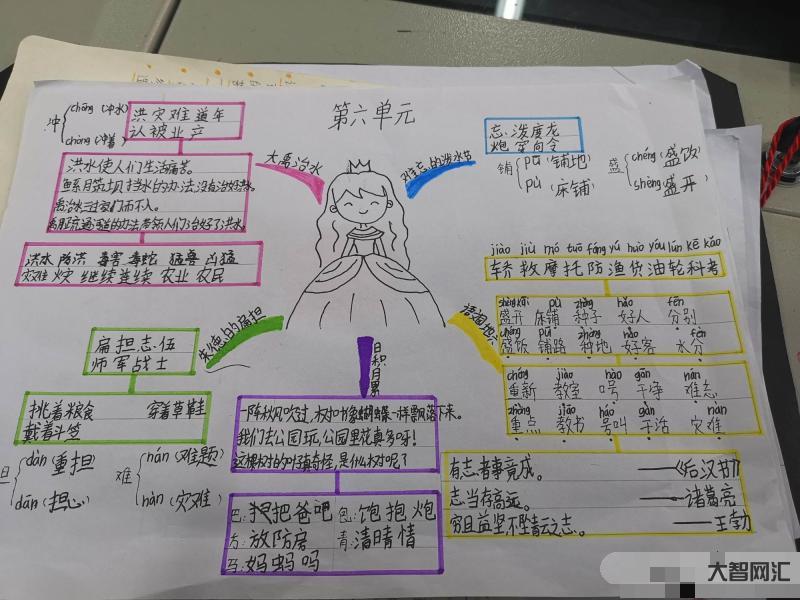 第六单元
chōng(冲水)
冲
chòng(冲着
洪灾难道年
认被业产
大禹治水
洪水使人们生活痛苦。
鲧用筑坝挡水的办法没有治好洪水。
禹治水三过家门而不入。
禹用疏通河道的办法带领人们治好了洪水。
洪水 防洪 毒害 毒蛇 猛兽 凶猛
灾难 火灾 继续 连续 农业 农民
邓
的泼水节
忘泼度龙
炮 军向令
铺
pū(铺地)
pù(床铺)
盛
chéng(盛饭
shèng盛开
朱德的扁担
扁担志伍
师军战士
挑着粮食 穿着草鞋
戴着斗笠
dàn(重担
dān(担心
难
nán(难题)
nàn(灾难
日积月累
我们去公园玩,公园里花真多呀!
这棵树的叶子真奇怪,是什么树呢?
巴:把爸吧
包:饱抱炮
方:放防房
青:清晴情
马:妈蚂吗
语园地六
jiào jiù mó tuō fáng yú huò yóu lún kē kǎo
轿救摩托防渔货油轮科考
shèng kāi pù zhǒng hǎo fēn
盛开 床铺 种子 好人 分别
chéng pū zhòng hào fèn
盛饭 铺路 种地 好客 水分
chóng jiào hào gān nán
重新 教室 口号 干净 难忘
zhòng jiāo háo gàn nàn
重点 教书 号叫 干活 灾难
有志者事竟成。 ——《后汉书》
志当存高远。 ——诸葛亮
穷且益坚,不坠青云之志。 ——王勃
大智网汇